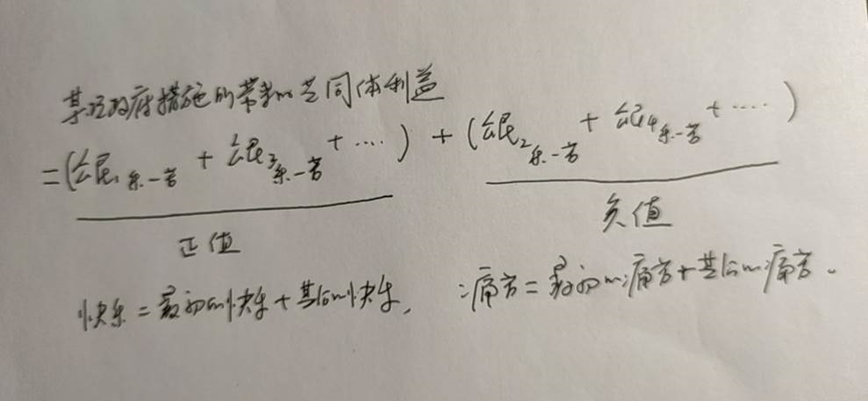 某项政府措施的带来的共同体利益
=(公民₁ 乐-苦 + 公民₃ 乐-苦 + ····) + (公民₂ 乐-苦 + 公民₄ 乐-苦 + ····)
正值 负值
快乐=最初的快乐+其后的快乐, 痛苦=最初的痛苦+其后的痛苦.